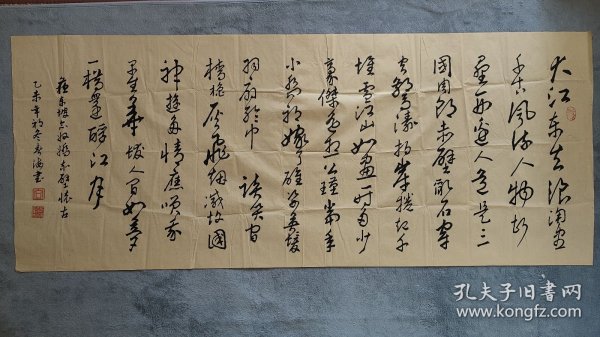 大江东去浪淘尽
千古风流人物故
垒西边人道是三
国周郎赤壁乱石穿
空惊涛拍岸捲起千
堆雪江山如画一时多少
豪傑遥想公瑾当年
小乔初嫁了雄姿英发
羽扇纶巾 谈笑间
樯橹灰飞烟灭故国
神游多情应笑我
早生华发人间如梦
一樽还酹江月
苏东坡念奴娇赤壁怀古
乙未年初冬 海书
孔夫子旧书网
www.kongfz.com